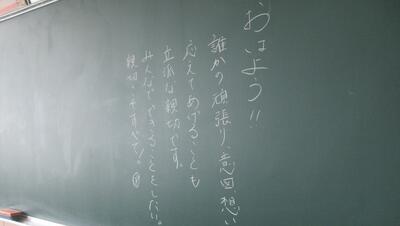 おはよう!!
誰かの頑張り、意図、想い
応えてあげることも
立派な親切です。
みんなでできることをしたい。
親切、そすべて!